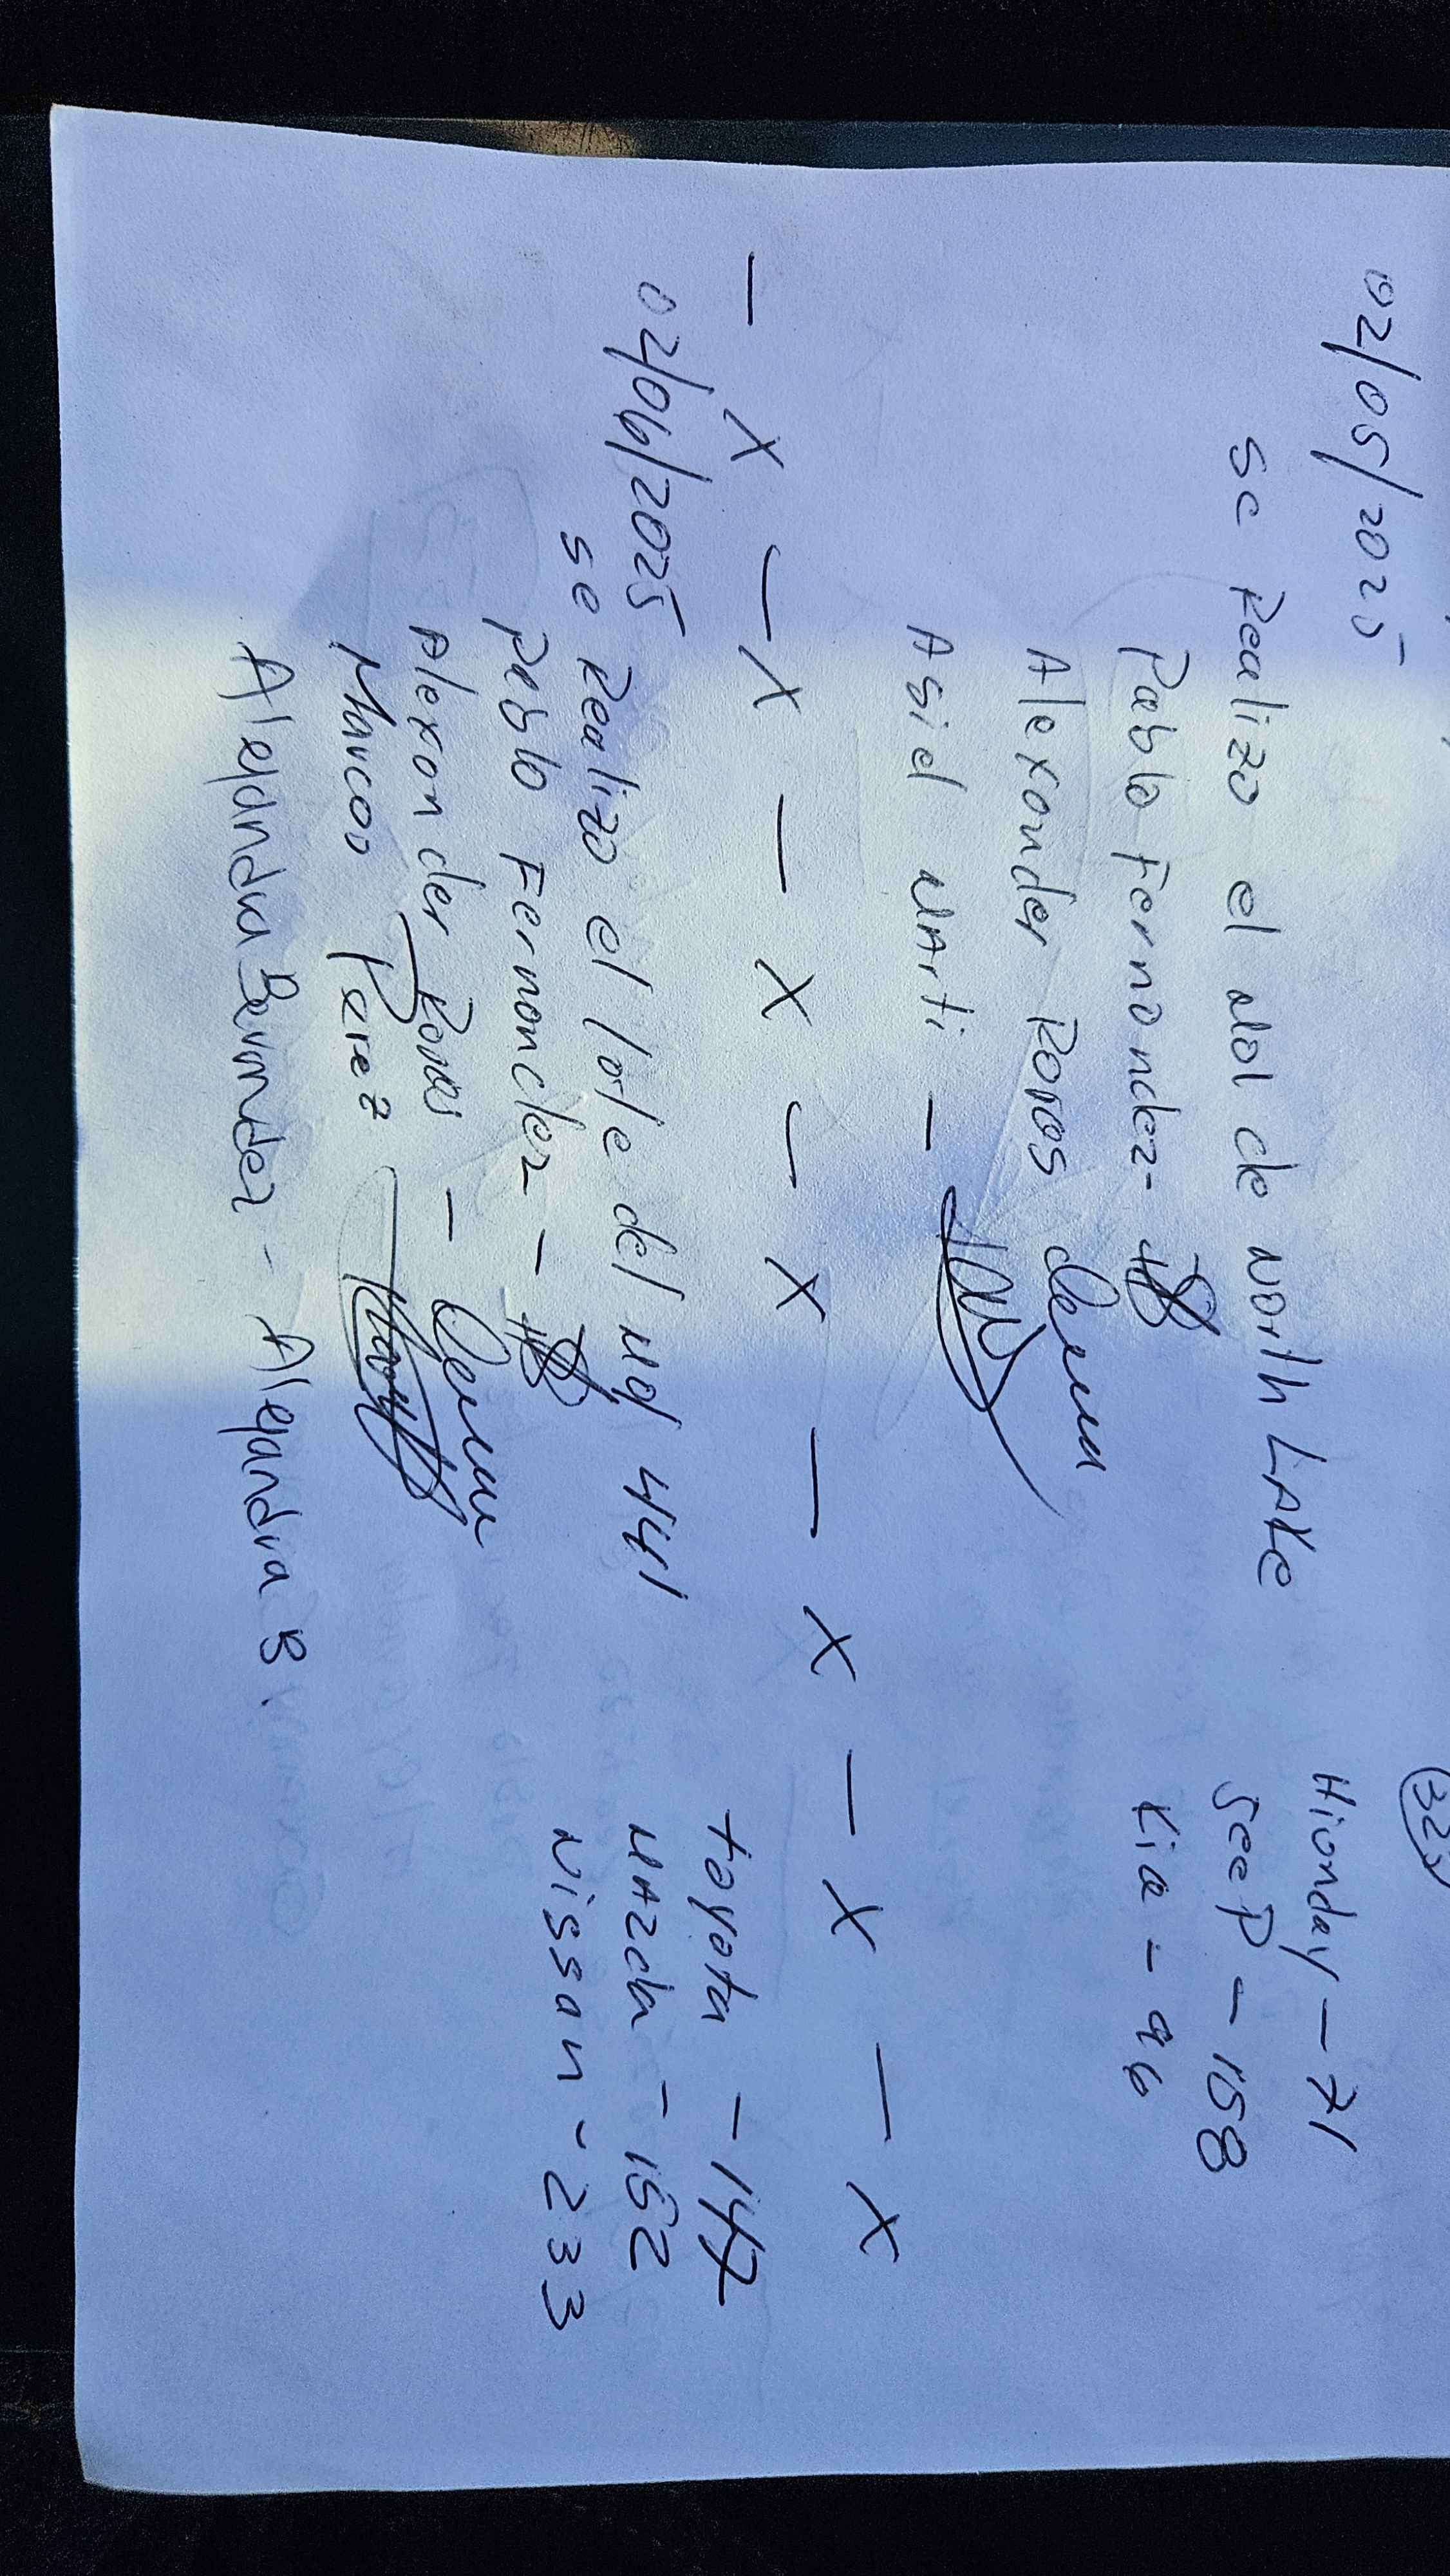 02/05/2025
Se Realizo el Mol de North LAKe
Pablo Fernandez -
Alexander Rosas
Asid MArti -
325
Hionday - 71
JeeP - 158
Kia - 96
— X — X — X — X — X — X — X
02/06/2025
se Realizo el lote del Mg 441
Pablo Fernandez -
Alexander Rosas -
Marcos Perez
Alejandra Bermudez - Alejandra B.
toyota - 147
MAzda - 152
Nissan - 233